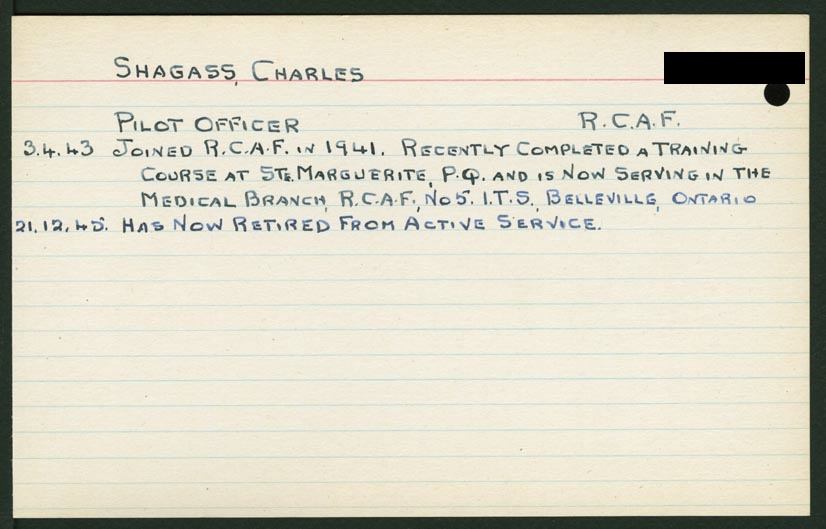 SHAGASS, CHARLES
PILOT OFFICER R.C.A.F.
3.4.43 JOINED R.C.A.F. IN 1941. RECENTLY COMPLETED A TRAINING
COURSE AT STE. MARGUERITE, P.Q. AND IS NOW SERVING IN THE
MEDICAL BRANCH, R.C.A.F., NO 5. I.T.S., BELLEVILLE, ONTARIO
21.12.45. HAS NOW RETIRED FROM ACTIVE SERVICE.